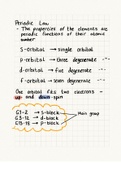 Periodic Law
- The properties of the elements are
periodic functions of their atomic
number
S-orbital → single orbital
p-orbital → three degenerate
d-orbital → five degenerate
f-orbital → seven degenerate
One orbital fits two electrons -
up and down spin
G1-2 → s-block
G3-12 → d-block
G13-18 → p-block
Main group